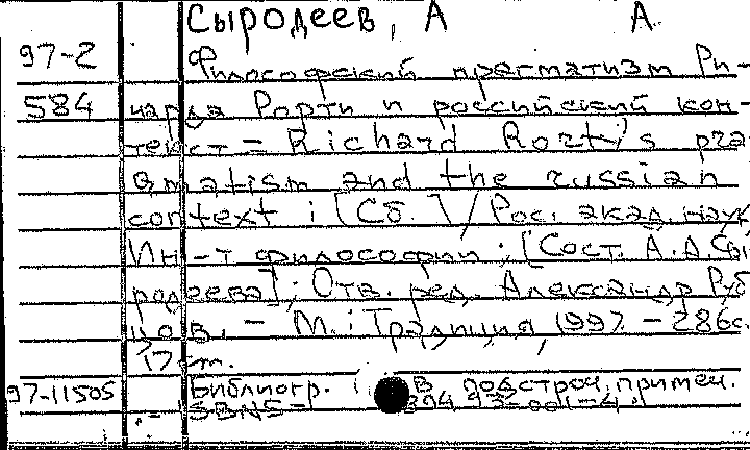 Сыродеев, А А.
97-2 Философский прагматизм Ри-
584 чарда Рорти и российский кон-
текст = Richard Rorty's pra-
gmatism and the russian
context : [Сб.] / Рос. акад. наук,
Ин-т философии ; [Сост. А.А.Сы
родеева]; Отв. ред. Александр Руб
цов. - М. : Традиция, 1997. - 286с.
17 cm.
97-11505 Библиогр. : в подстроч. примеч.